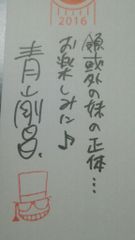 2016
領域外の妹の正体…
お楽しみに♪
青山剛昌